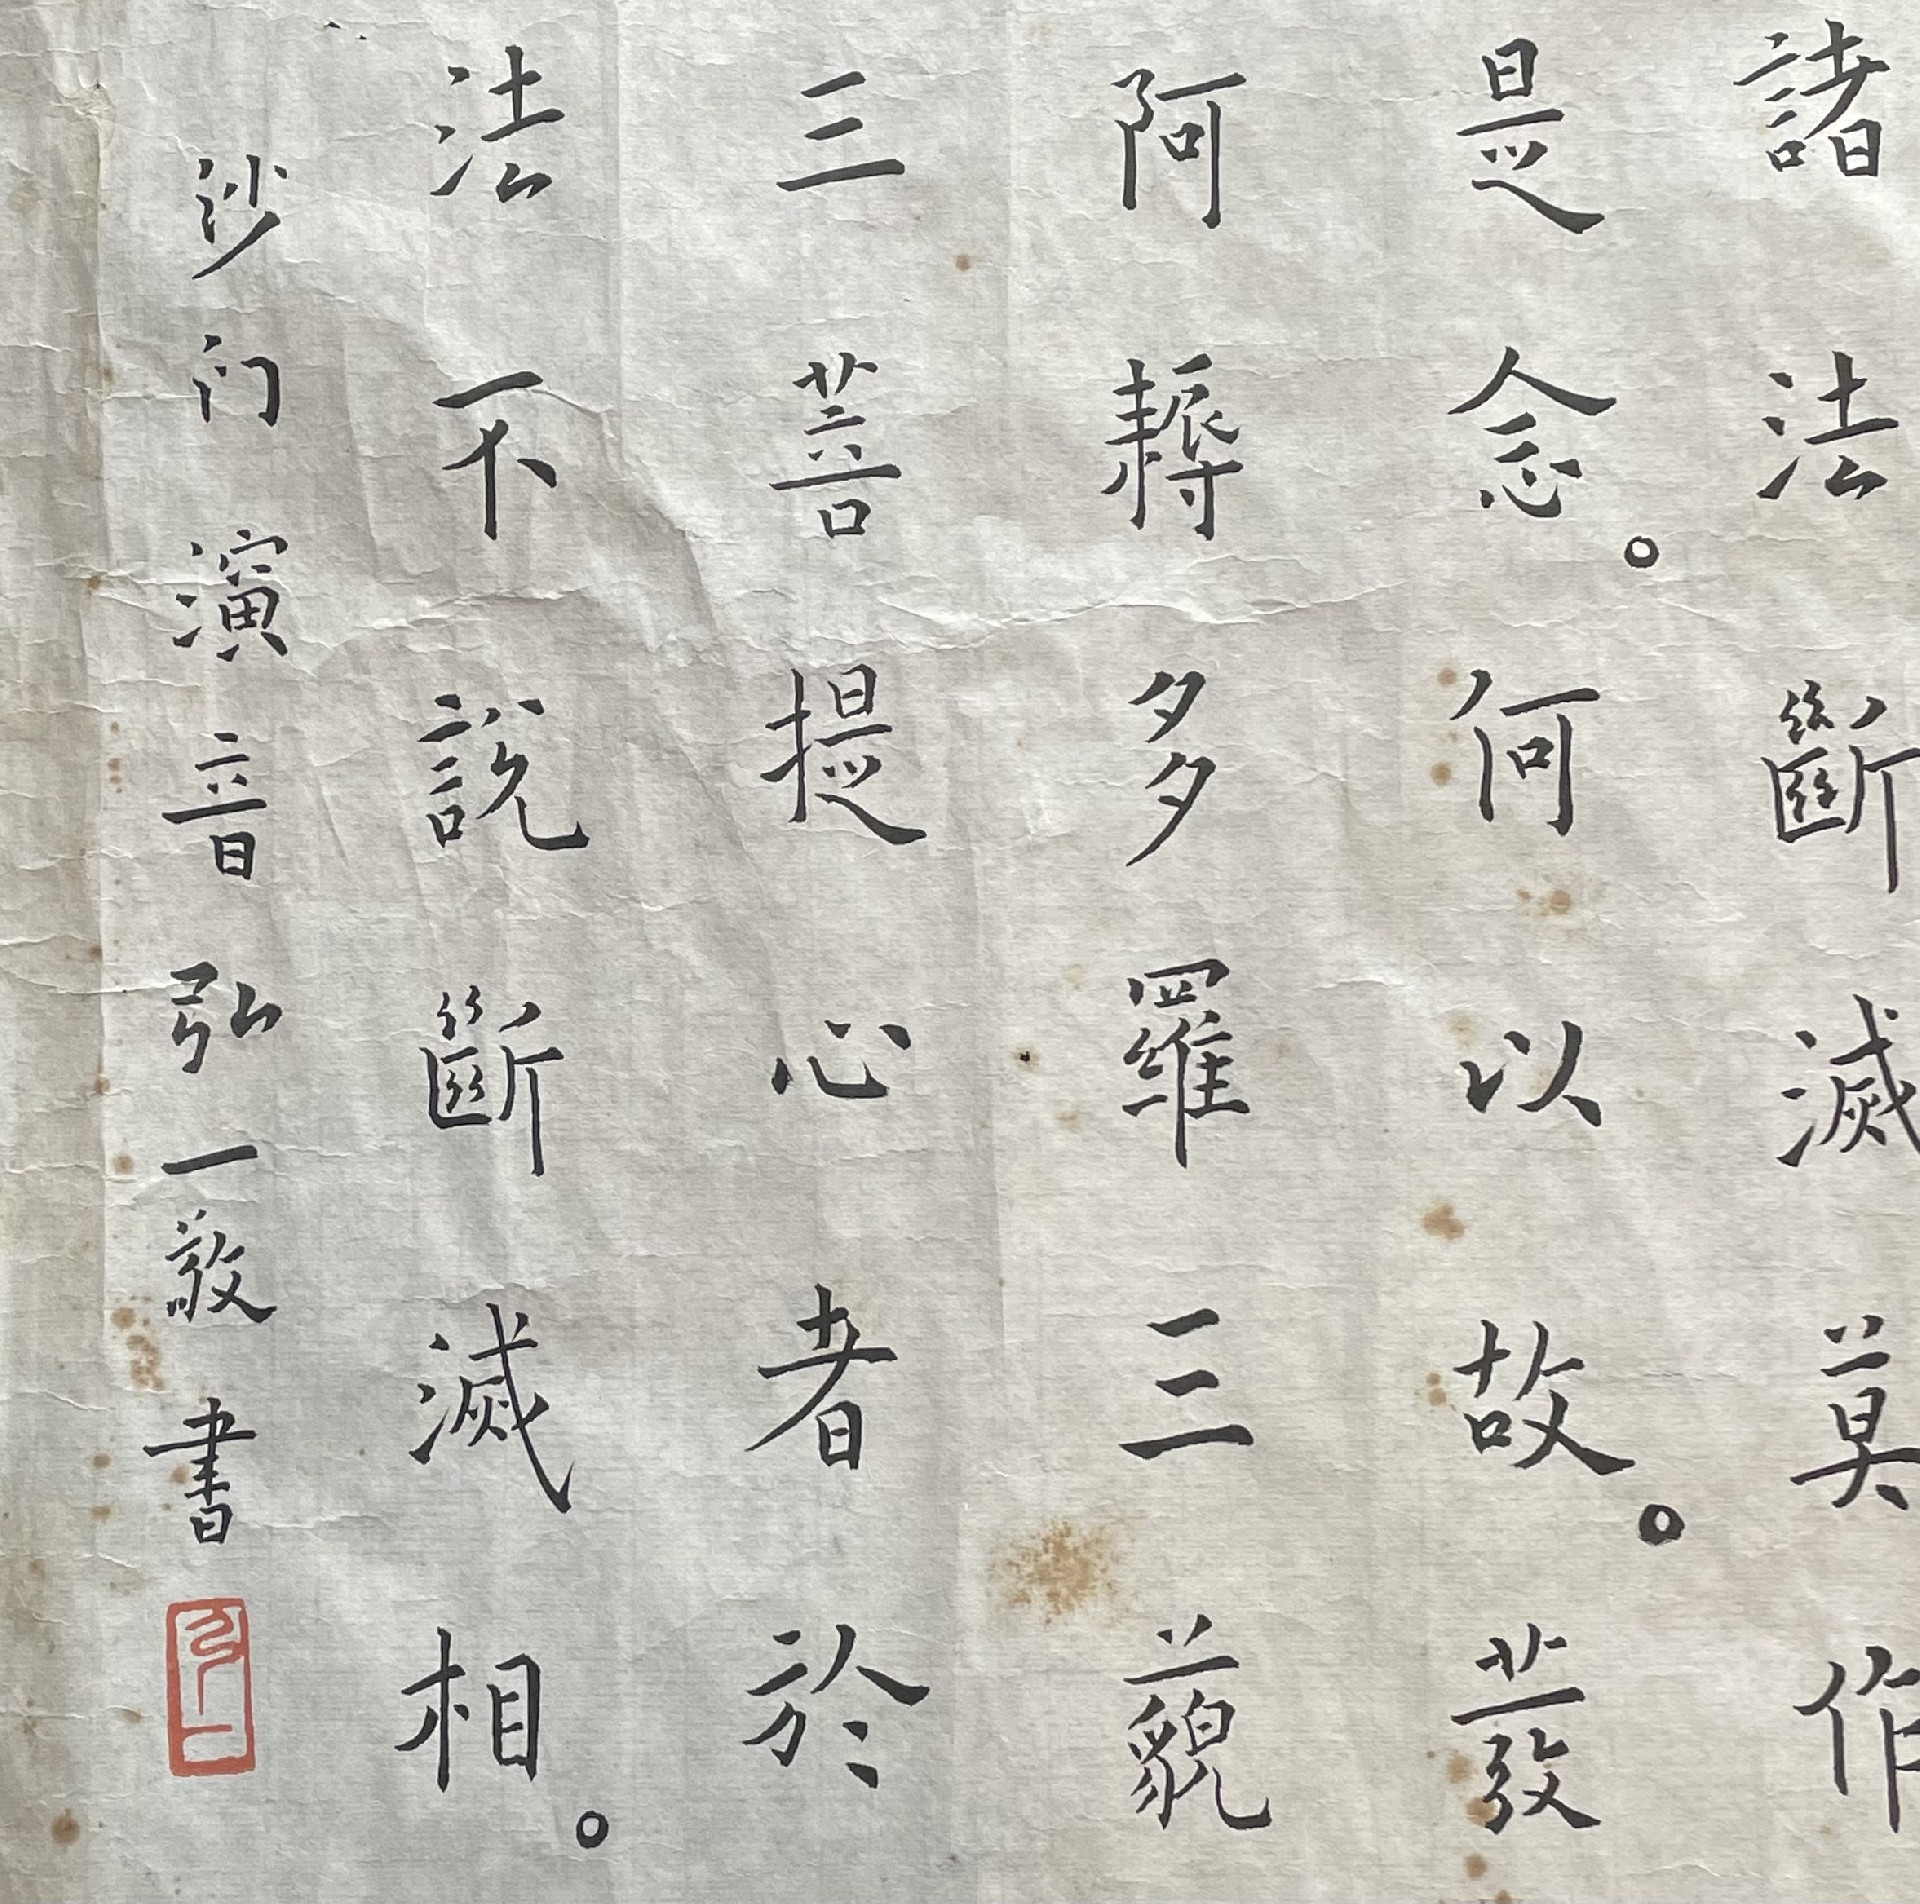 諸法斷滅莫作
是念。何以故。發
阿耨多羅三藐
三菩提心者於
法不說斷滅相。
沙门演音弘一敬書
弘一